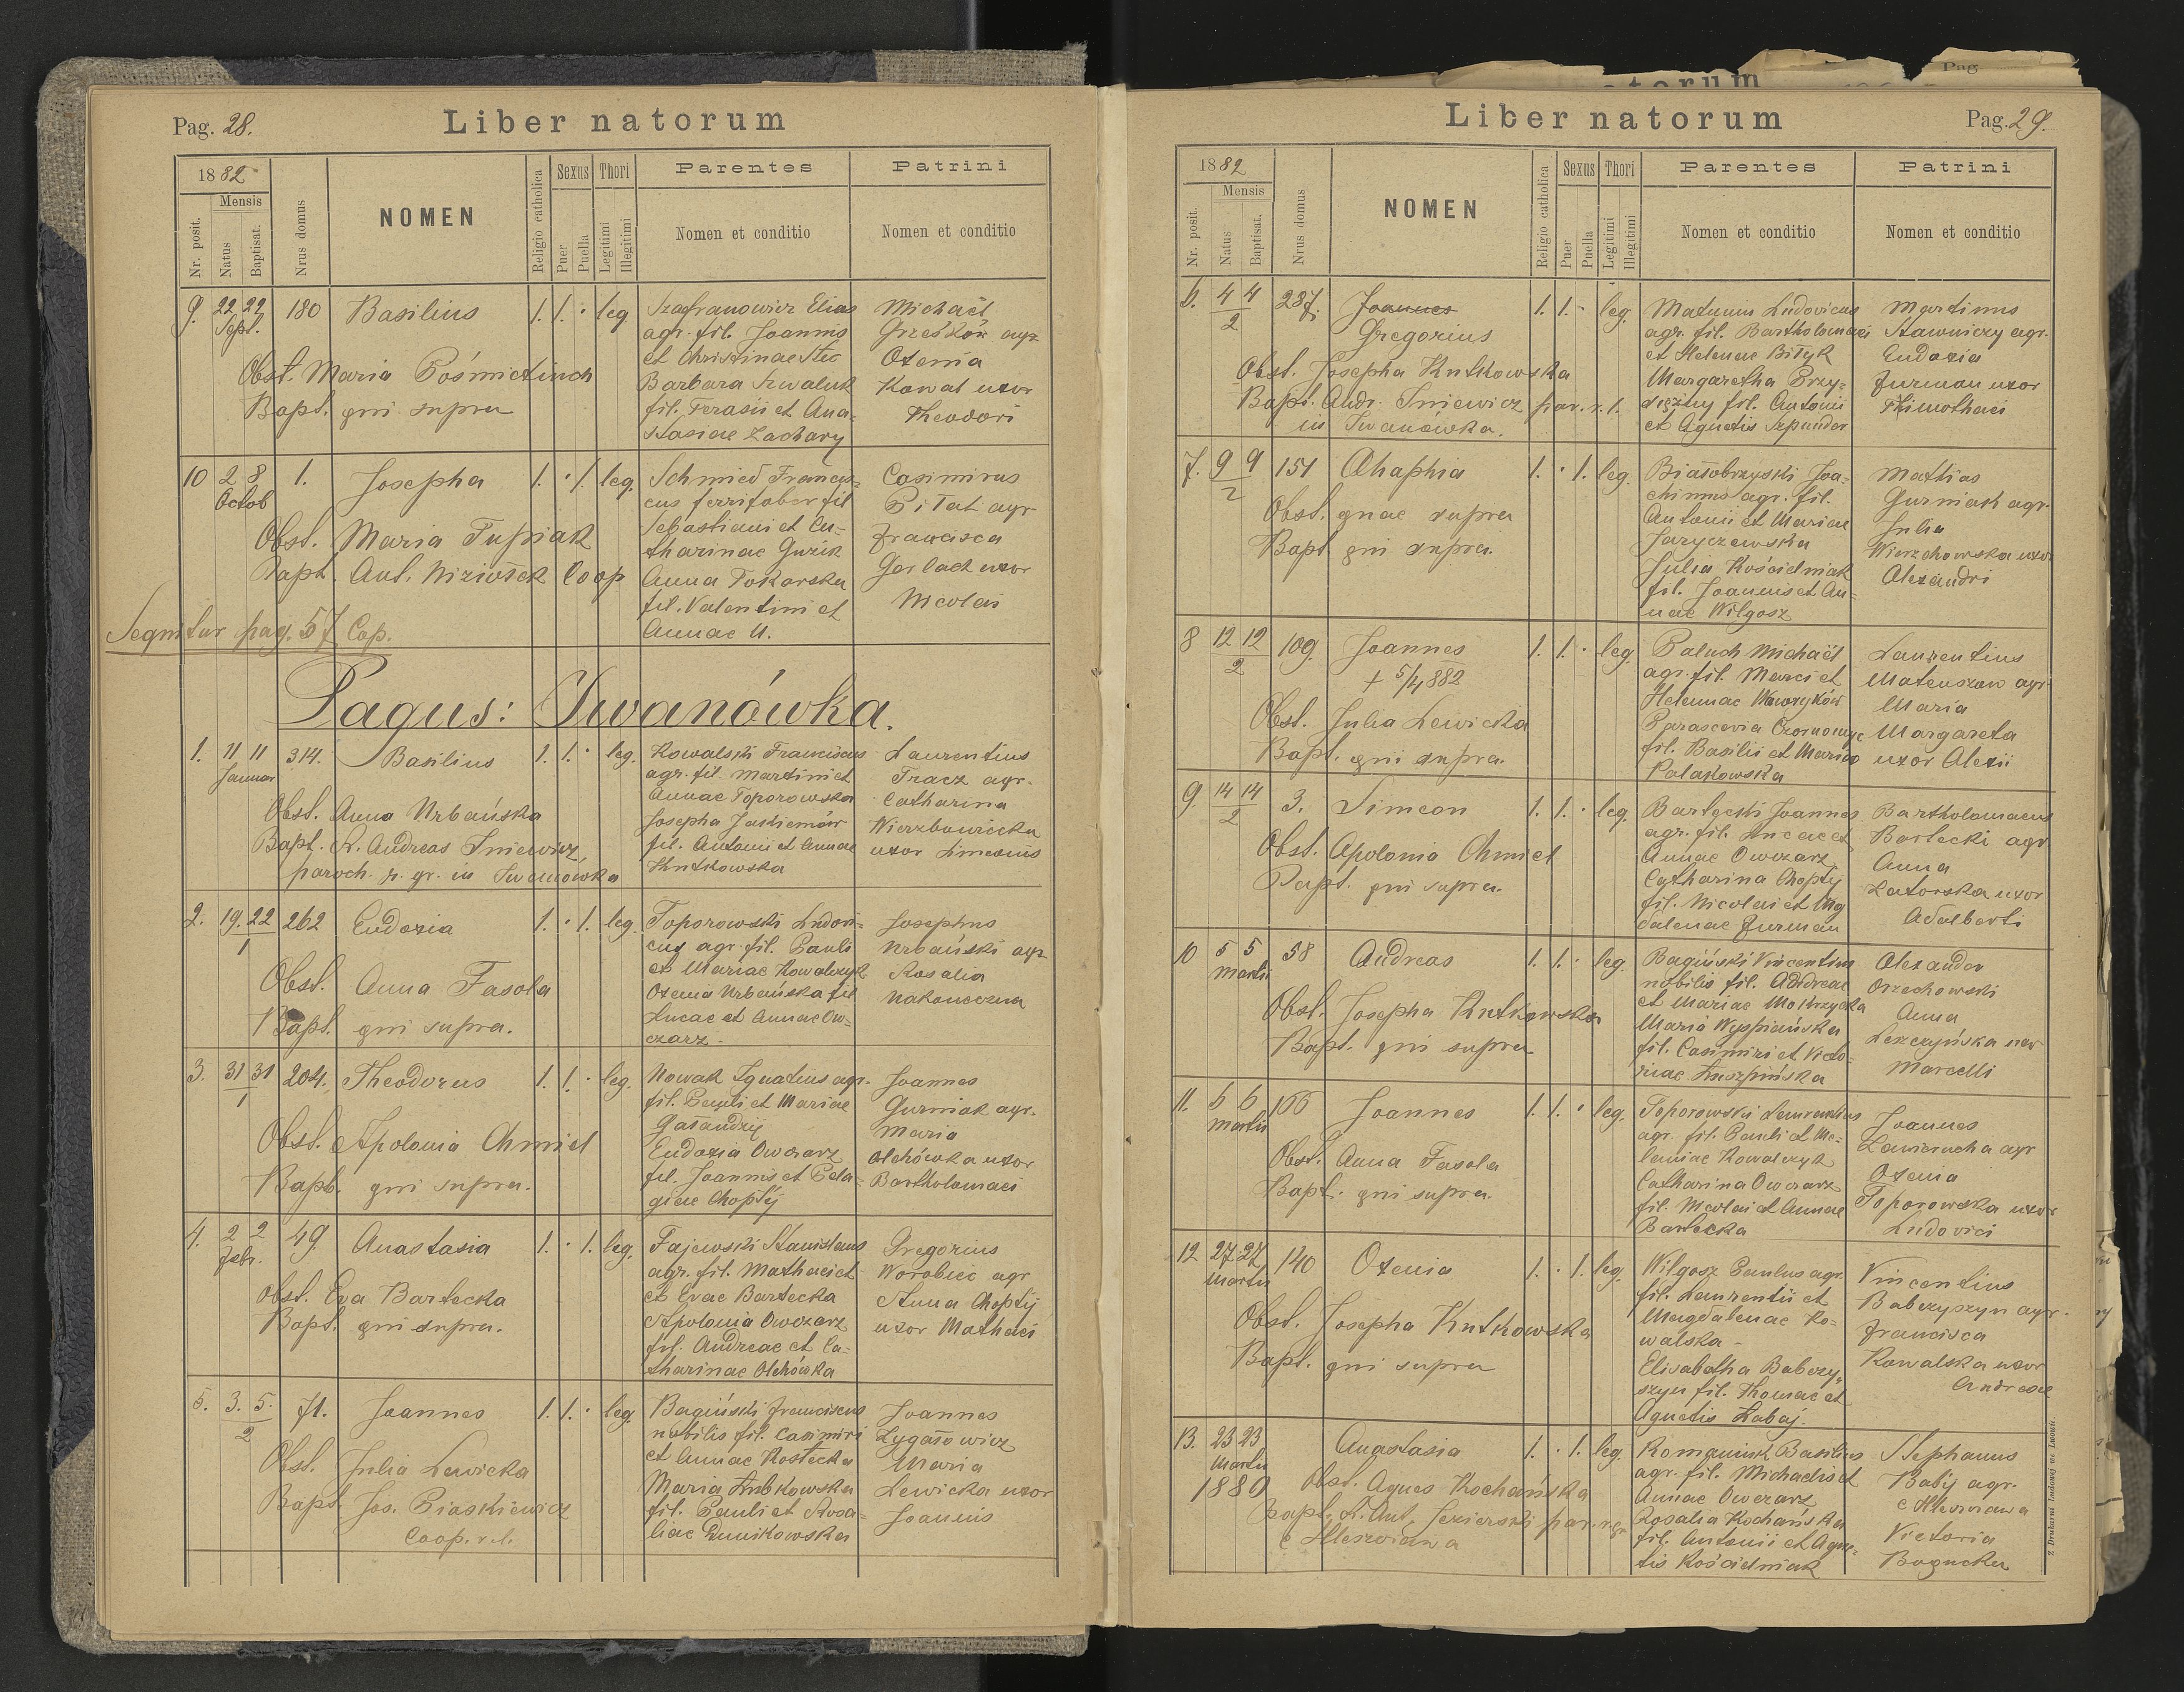 Pag. 28.
Liber natorum
1882
Mensis
Nr. posit.
Natus
Baptisat.
Nrus domus
NOMEN
Religio catholica
Sexus
Puer
Puella
Thori
Legitimi
Illegitimi
Parentes
Nomen et conditio
Patrini
Nomen et conditio
9. 22 22 180 Basilius 1. 1. · leg
Sept.
Obst. Maria
Bapt. qui supra
Szafranowicz Elias
agr. fil. Joannis
et Christinae Stec
Barbara Szwaluk
fil. Terasii et Ana-
stasiae Zachary
Michaël
Grześków agr
Oxenia
Kowal uxor
Theodori
10 2 8 1. Josepha 1. · 1. leg.
Octob
Obst. Maria Tupiak
Bapt. Ant. Niziołek Coop
Schmied Francis-
cus ferrifaber fil
Sebastiani et Ca-
tharinae Guzik
Anna Tokarska
fil. Valentini et
Annae N.
Casimirus
Bitat agr
Francisca
Gerlach uxor
Nicolai
Sequitur pag. 57 Cop.
Pagus: Iwanówka.
1. 11 11 314. Basilius 1. 1. · leg.
Januar
Obst. Anna Urbańska
Bapt. R. Andreas Iniewicz,
paroch. r. gr. in Iwanówka
Kowalski Franciscus
agr. fil. Martini et
Annae Toporowska
Josepha Jaskiemów
fil. Antoni et Annae
Kutkowska
Laurentius
Tracz agr.
Catharina
Wierzbowiecka
uxor Simeonis
2. 19. 22 262 Eudoxia 1. · 1. leg.
1
Obst. Anna Fasola
Bapt. qui supra.
Toporowski Ludovi-
cus agr. fil. Pauli
et Mariae Kowalczyk
Oxenia Urbańska fil
Lucae et Annae Ow-
czarz -
Josephus
Urbański agr
Rosalia
Nakoneczna
3. 31 31 204. Theodorus 1. 1. · leg.
1
Obst. Apolonia Chmiel
Bapt. qui supra.
Nowak Ignatius agr.
fil. Pauli et Mariae
Gałandzij
Eudoxia Owczarz
fil. Joannis et Pela-
giae Choptij
Joannes
Gurniak agr.
Maria
Olchówka uxor
Bartholomaei
4. 2 2 49. Anastasia 1. · 1. leg.
Febr.
Obst. Eva Bartecka
Bapt. qui supra.
Fajewski Stanislaus
agr. fil. Mathaei et
et Evae Bartecka
Apolonia Owczarz
fil. Andreae et Ca-
tharinae Olchówka
Gregorius
Worobiec agr
Anna Choptij
uxor Mathaei
5. 3. 5. 71. Joannes 1. 1. · leg.
2
Obst. Julia Lewicka
Bapt. Jos. Piaskiewicz
Coop. r. l.
Bagiński Franciscus
nobilis fil. Casimiri
et Annae Kostecka
Maria Łubkowska
fil. Pauli et Rosa-
liae Dunikowska
Joannes
Zygałowicz
Maria
Lewicka uxor
Joannis
Liber natorum
Pag. 29.
1882
Mensis
Nr. posit.
Natus
Baptisat.
Nrus domus
NOMEN
Religio catholica
Sexus
Puer
Puella
Thori
Legitimi
Illegitimi
Parentes
Nomen et conditio
Patrini
Nomen et conditio
6. 4 4 287. Joannes 1. 1. · leg.
2
Gregorius
Obst. Josepha Kutkowska
Bapt. Andr. Iniewicz par. r. l.
in Iwanówka.
Matuum Ludovicus
agr. fil. Bartholomaei
et Helenae Bityk
Margaretha Przy-
fil. Antonii
et Agnetis Szpunder
Martinus
Stawniczy agr.
Eudoxia
Furman uxor
Thimothaei
7. 9 9 151 Ahaphia 1. · 1. leg.
2
Obst. quae supra
Bapt qui supra.
Białobrzyski Joa-
chimus agr. fil.
Antonii et Mariae
Jaryczewska
Julia Kościelniak
fil. Joannis et An-
nae Wilgosz
Mathias
Gurniak agr.
Julia
Wierzchowska uxor
Alexandri
8 12 12 109. Joannes 1. 1. · leg.
2
+ 5/4 882
Obst. Julia Lewicka
Bapt. qui supra.
Paluch Michaël
agr. fil. Marci et
Helenae Wawryków
Parascevia
fil. Basilii et Mariae
Polakowska
Laurentius
Mateuszow agr.
Maria
Margareta
uxor Alexii
9. 14 14 3. Simeon 1. 1. · leg.
2
Obst. Apolonia Chmiel
Bapt. qui supra.
Bartecki Joannes
agr. fil. Lucae et
Annae Owczarz
Catharina Choptij
fil. Nicolai et Mag
dalenae Furman
Bartholomaeus
Bartecki agr
Anna
Zatorska uxor
Adalberti
10 5 5 58 Andreas 1. 1. · leg.
Martii
Obst. Josepha Kutkowska
Bapt. qui supra
Bagiński Vincentius
nobilis fil. Andreae
et Mariae Mokrzycka
Maria Wyspiańska
fil. Casimiri et Victo-
riae
Alexander
Orzechowski
Anna
Leszczyńska uxor
Marcelli
11. 6 6 166 Joannes 1. 1. · leg.
Martii
Obst. Anna Fasola
Bapt. qui supra.
Toporowski Laurentius
agr. fil. Pauli et Me-
laniae Kowalczyk
Catharina Owczarz
fil. Nicolai et Annae
Bartecka
Joannes
Ławerucha agr
Oxenia
Toporowska uxor
Ludovici
12 27 27 140 Oxenia 1. · 1. leg.
Martii
Obst. Josepha Kutkowska
Bapt. qui supra
Wilgosz Paulus agr.
fil. Laurentii et
Magdalenae Ko-
walska -
Elisabetha Babczy-
szyn fil. Thomae et
Agnetis Labaj.
Vincentius
Babczyszyn agr.
Francisca
Kowalska uxor
Andreae
13. 23 23 Anastasia 1. · 1. leg.
Martii
1880 Obst. Agnes Kochańska
Bapt. R. Ant. Jezierski par. r. gr
e Hleszczawa
Romaniuk Basilius
agr. fil. Michaelis et
Annae Owczarz
Rosalia Kochańska
fil. Antonii et Agne-
tis Kościelniak
Stephanus
Babij agr.
e Hleszczawa
Victoria
Bogucka
Z Drukarni Ludowej we Lwowie.